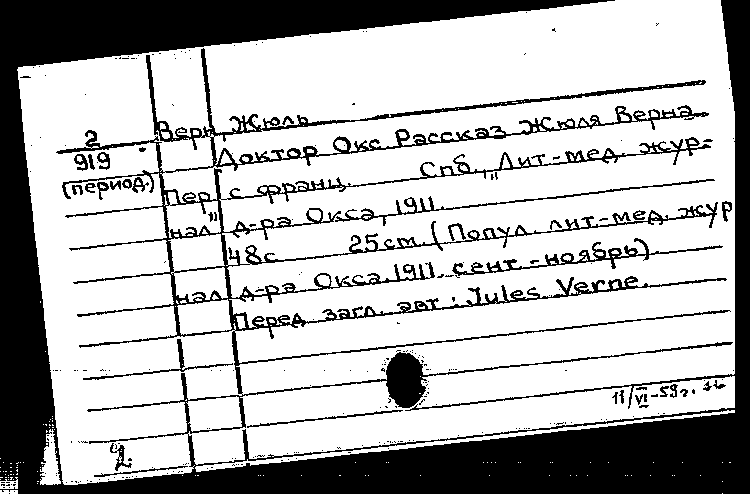 Верн, Жюль
2
919
(период.)
Доктор Окс. Рассказ Жюля Верна
Пер. с франц. Спб., „Лит-мед. жур-
нал д-ра Окса", 1911.
48с 25cm. (Попул. лит.-мед. жур
нал д-ра Окса. 1911. сент.-ноябрь).
Перед загл. авт: Jules Verne.
11/VI-59г.
2.